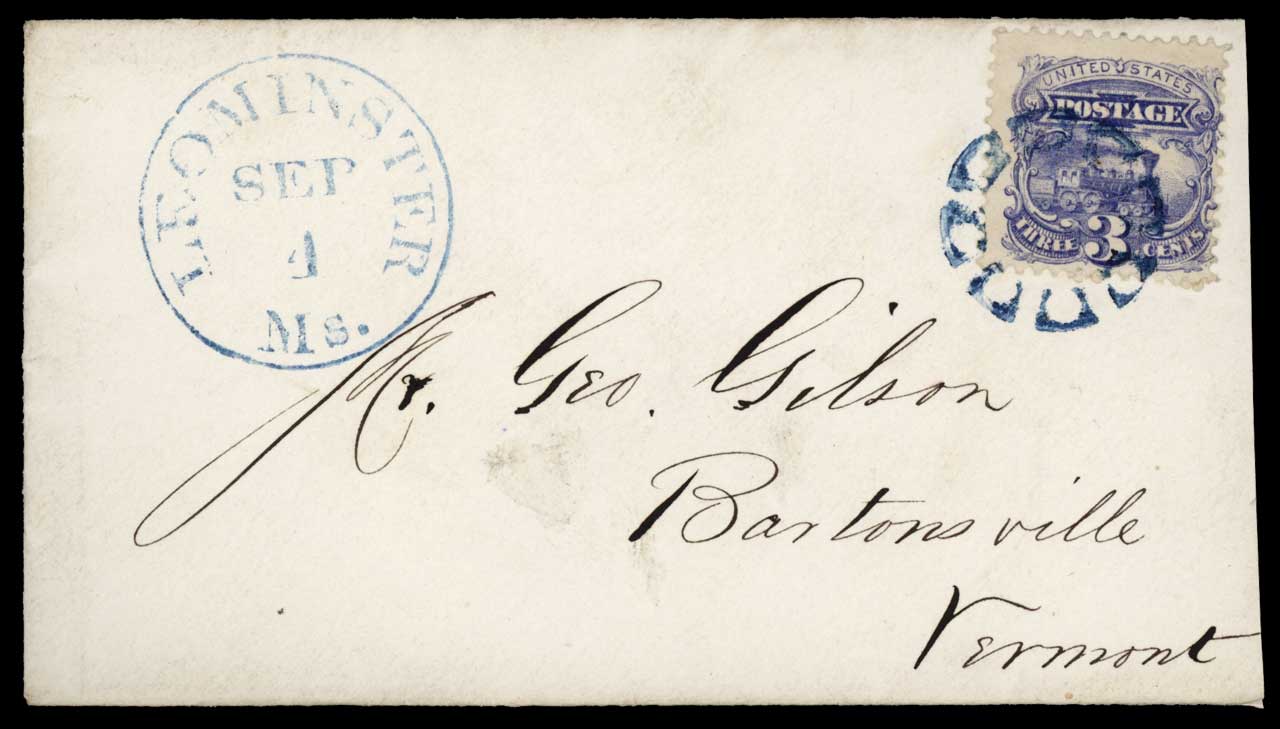 LEOMINSTER
SEP
4
Ms.
UNITED STATES
POSTAGE
THREE 3 CENTS
Mr. Geo. Gilson
Bartonsville
Vermont